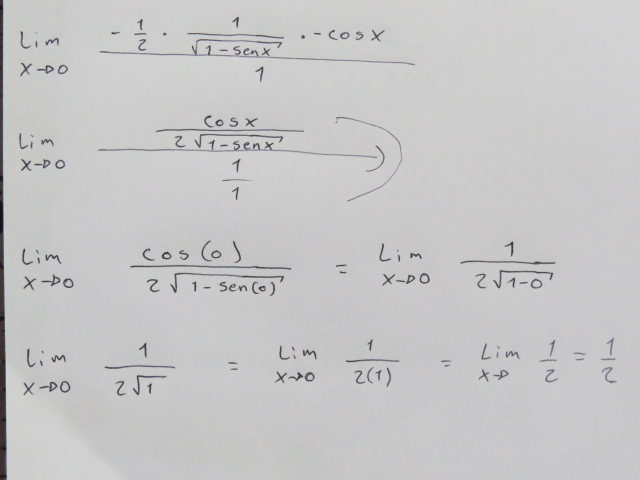 Lim x→0 (-1/2 · 1/√(1-senx) · -cosx)/1
Lim x→0 (cosx/(2√(1-senx)))/(1/1)
Lim x→0 cos(0)/(2√(1-sen(0))) = Lim x→0 1/(2√(1-0))
Lim x→0 1/(2√1) = Lim x→0 1/(2(1)) = Lim x→ 1/2 = 1/2